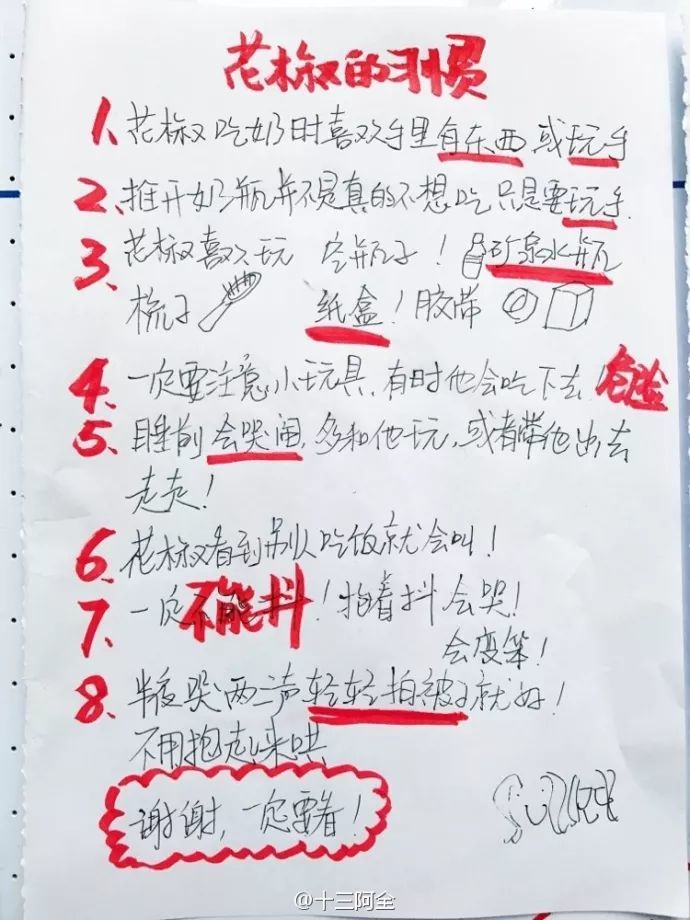 花椒的习惯
1、花椒吃奶时喜欢手里有东西或玩手
2、推开奶瓶并不是真的不想吃只是要玩手
3、花椒喜欢玩 空瓶子！矿泉水瓶
梳子 纸盒！胶带
4、一定要注意小玩具，有时他会吃下去！危险
5、睡前会哭闹，多和他玩，或者带他出去
走走！
6、花椒看到别人吃饭就会叫！
7、一定不能抖！抱着抖会哭！
会变笨！
8、半夜哭两三声轻轻拍被子就好！
不用抱起来哄
谢谢，一定要看！
@十三阿全